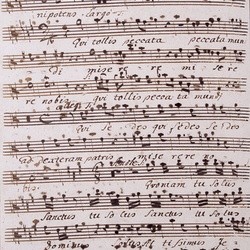 nipotens. Largo
Qui tollis peccata peccata mun
di mise re re mi se re
re nobis Qui tollis peccata mundi
Qui Se des qui sedes Sedes
ad dexteram patris mise re re no
bis. Quoniam tu solus
Sanctus tu solus Sanctus tu Solus
Dominus solus Al tissimus Je